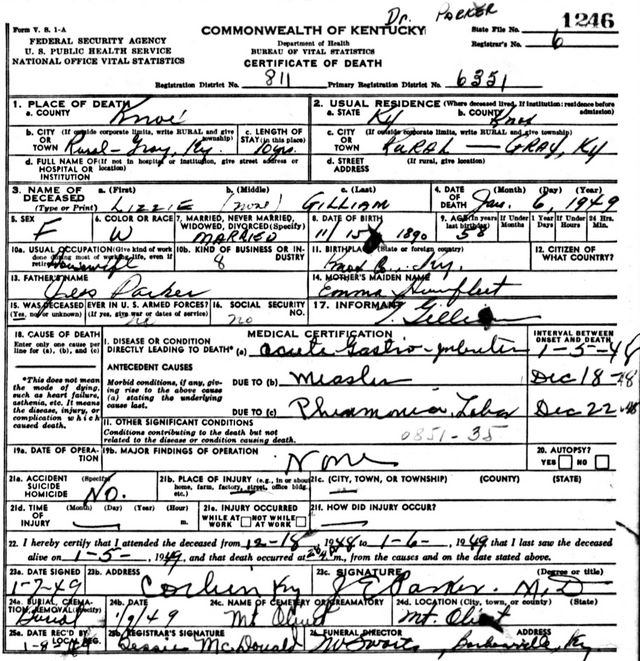 Dr. PARKER
Form V. S. 1-A
COMMONWEALTH OF KENTUCKY
State File No. 1246
FEDERAL SECURITY AGENCY
Department of Health
Registrar's No. 6
U. S. PUBLIC HEALTH SERVICE
BUREAU OF VITAL STATISTICS
NATIONAL OFFICE VITAL STATISTICS
CERTIFICATE OF DEATH
Registration District No. 811 Primary Registration District No. 6351
1. PLACE OF DEATH
2. USUAL RESIDENCE (Where deceased lived. If institution: residence before admission)
a. COUNTY Knox
a. STATE Ky b. COUNTY Knox
b. CITY (If outside corporate limits, write RURAL and give township) OR TOWN Rural-Gray, Ky. c. LENGTH OF STAY (in this place) 10 yrs.
c. CITY (If outside corporate limits, write RURAL and give township) OR TOWN RURAL — GRAY, Ky
d. FULL NAME OF (If not in hospital or institution, give street address or location) HOSPITAL OR INSTITUTION
d. STREET ADDRESS (If rural, give location)
3. NAME OF DECEASED (Type or Print) a. (First) LIZZIE b. (Middle) (none) c. (Last) GILLIAM
4. DATE OF DEATH (Month) (Day) (Year) Jan. 6, 1949
5. SEX F
6. COLOR OR RACE W
7. MARRIED, NEVER MARRIED, WIDOWED, DIVORCED (Specify) MARRIED
8. DATE OF BIRTH 11 15 1890
9. AGE (In years last birthday) 58 If Under 1 Year Months Days If Under 24 Hrs. Hours Min.
10a. USUAL OCCUPATION (Give kind of work done during most of working life, even if retired) Housewife
10b. KIND OF BUSINESS OR INDUSTRY 8
11. BIRTHPLACE (State or foreign country) Knox Co. Ky.
12. CITIZEN OF WHAT COUNTRY?
13. FATHER'S NAME Parker
14. MOTHER'S MAIDEN NAME Emma
15. WAS DECEASED EVER IN U. S. ARMED FORCES? (Yes, no or unknown) (If yes, give war or dates of service) no
16. SOCIAL SECURITY NO. no
17. INFORMANT
18. CAUSE OF DEATH
MEDICAL CERTIFICATION
INTERVAL BETWEEN ONSET AND DEATH
Enter only one cause per line for (a), (b), and (c)
I. DISEASE OR CONDITION DIRECTLY LEADING TO DEATH* (a) acute Gastro- 1-5-48
*This does not mean the mode of dying, such as heart failure, asthenia, etc. It means the disease, injury, or complication which caused death.
ANTECEDENT CAUSES
Morbid conditions, if any, giving rise to the above cause (a) stating the underlying cause last.
DUE TO (b) Measles Dec 18-48
DUE TO (c) Pneumonia Lobar Dec 22-48
II. OTHER SIGNIFICANT CONDITIONS
Conditions contributing to the death but not related to the disease or condition causing death.
0851-35
19a. DATE OF OPERATION
19b. MAJOR FINDINGS OF OPERATION None
20. AUTOPSY? YES NO
21a. ACCIDENT SUICIDE HOMICIDE (Specify) NO.
21b. PLACE OF INJURY (e.g., in or about home, farm, factory, street, office bldg. etc.)
21c. (CITY, TOWN, OR TOWNSHIP) (COUNTY) (STATE)
21d. TIME OF INJURY (Month) (Day) (Year) (Hour) m.
21e. INJURY OCCURRED WHILE AT WORK NOT WHILE AT WORK
21f. HOW DID INJURY OCCUR?
22. I hereby certify that I attended the deceased from 12-18, 1948 to 1-6-, 1949 that I last saw the deceased
alive on 1-5-, 1949, and that death occurred at m., from the causes and on the date stated above.
23a. DATE SIGNED 1-7-49
23b. ADDRESS Corbin Ky
23c. SIGNATURE (Degree or title) J E Parker M.D
24a. BURIAL, CREMATION, REMOVAL (Specify) Burial
24b. DATE 1/9/49
24c. NAME OF CEMETERY OR CREAMATORY Mt Olivet
24d. LOCATION (City, town, or county) (State) Mt. Olivet
25a. DATE REC'D BY LOCAL REG.
25b. REGISTRAR'S SIGNATURE Bessie McDonald
26. FUNERAL DIRECTOR ADDRESS Barbourville, Ky